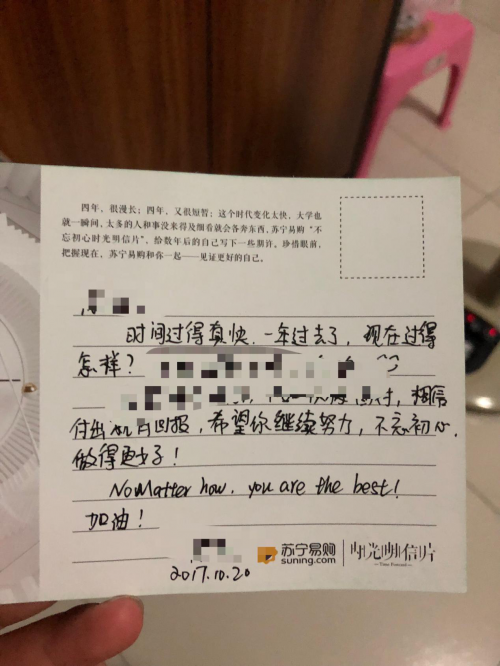 四年，很漫长；四年，又很短暂；这个时代变化太快，大学也
就一瞬间，太多的人和事没来得及细看就会各奔东西，苏宁易购“不
忘初心时光明信片”，给数年后的自己写下一些期许，珍惜眼前，
把握现在，苏宁易购和你一起——见证更好的自己。
时间过得真快，一年过去了，现在过得
怎样？
相信
付出就有回报，希望你继续努力，不忘初心，
做得更好！
No Matter how, you are the best!
加油！
2017.10.20
苏宁易购
suning.com
时光明信片